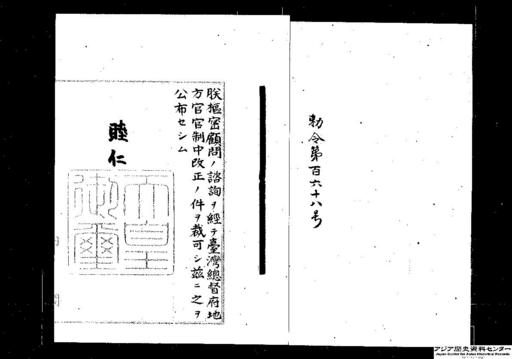 勅令第百六十八号
朕樞密顧問ノ諮詢ヲ經テ臺灣總督府地
方官官制中改正ノ件ヲ裁可シ茲ニ之ヲ
公布セシム
睦仁
天皇
御璽
アジア歴史資料センター
Japan Center for Asian Historical Records